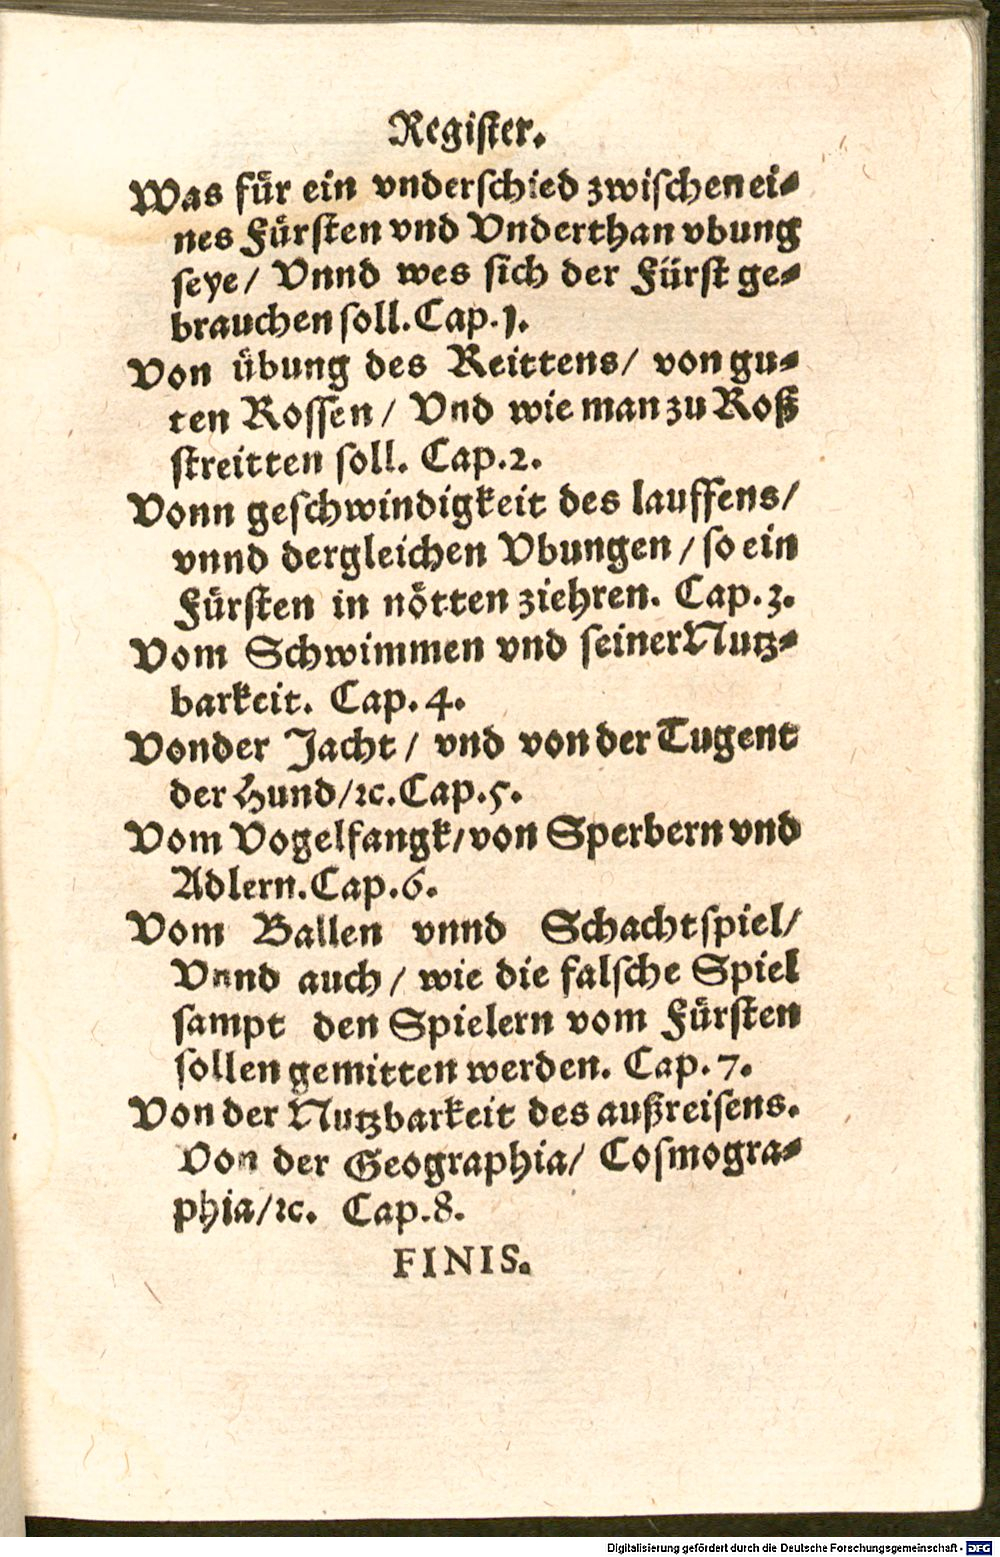 Register.
Was für ein vnderschied zwischen ei-
nes Fürsten vnd Vnderthan vbung
seye/ Vnnd wes sich der Fürst ge-
brauchen soll. Cap. 1.
Von übung des Reittens/ von gu-
ten Rossen/ Vnd wie man zu Roß
streitten soll. Cap. 2.
Vonn geschwindigkeit des lauffens/
vnnd dergleichen Vbungen/ so ein
Fürsten in nötten ziehren. Cap. 3.
Vom Schwimmen vnd seiner Nutz-
barkeit. Cap. 4.
Von der Jacht/ vnd von der Tugent
der Hund/ ꝛc. Cap. 5.
Vom Vogelfangk/ von Sperbern vnd
Adlern. Cap. 6.
Vom Ballen vnnd Schachtspiel/
Vnnd auch/ wie die falsche Spiel
sampt den Spielern vom Fürsten
sollen gemitten werden. Cap. 7.
Von der Nutzbarkeit des außreisens.
Von der Geographia/ Cosmogra-
phia/ ꝛc. Cap. 8.
FINIS.
Digitalisierung gefördert durch die Deutsche Forschungsgemeinschaft - DFG